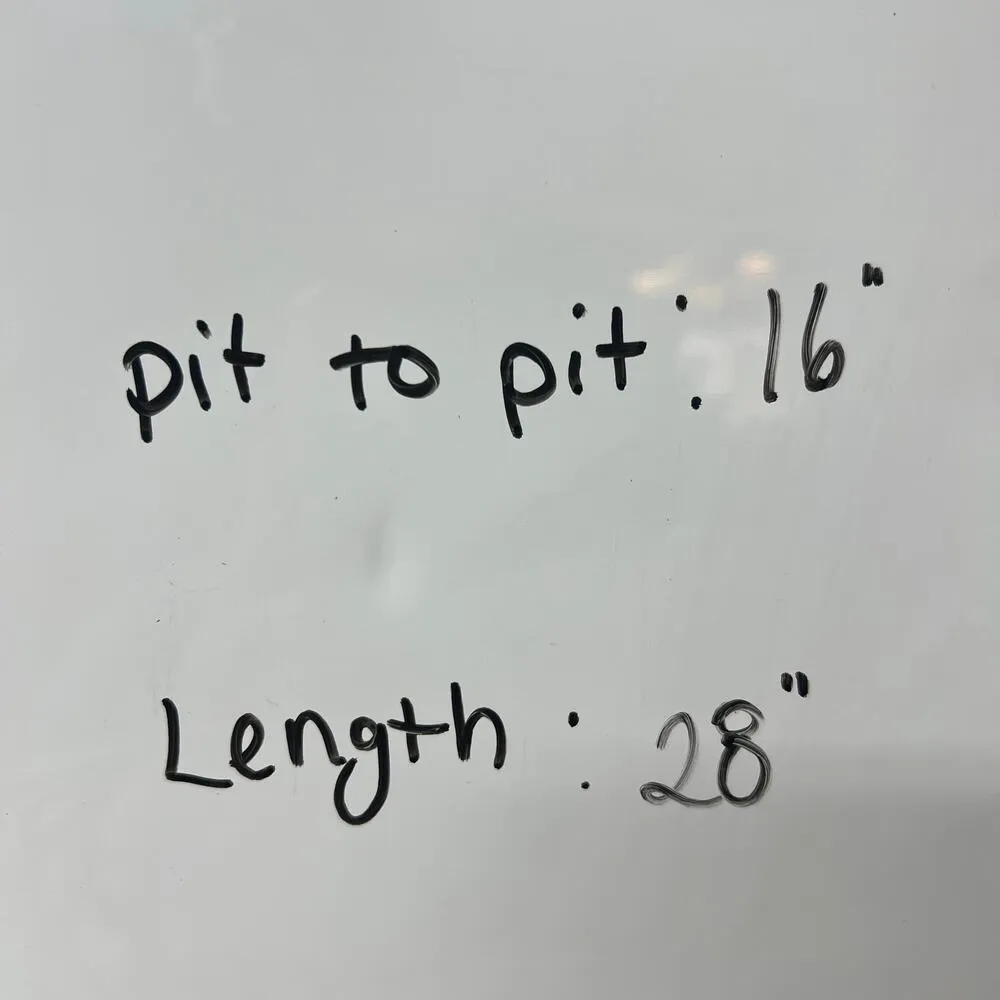 pit to pit: 16"
Length: 28"